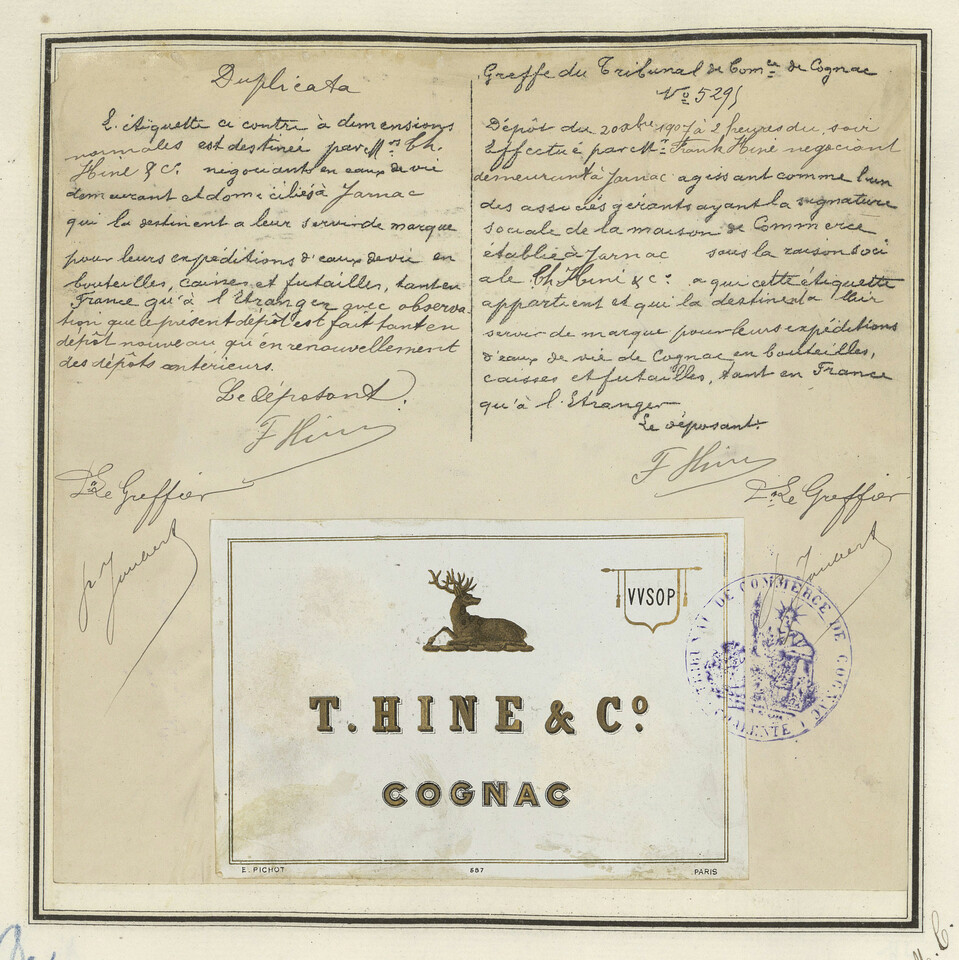 Duplicata
L'étiquette ci contre à dimensions
normales est destinée par Mrs Th.
Hine & Co. négociants en eaux de vie
demeurant et domiciliés à Jarnac
qui la destinent a leur servir de marque
pour leurs expéditions d'eaux de vie en
bouteilles, caisses et futailles, tant en
France qu'à l'Etranger avec observa
tion que le présent dépôt est fait tant en
dépôt nouveau qu'en renouvellement
des dépôts antérieurs.
Le déposant.
F Hine
Le Greffier
Joubert
Greffe du Tribunal de Comce de Cognac
No 5295
Dépôt du 20 1907 à 2 heures du soir
Effectué par Mr Frank Hine négociant
demeurant à Jarnac agissant comme l'un
des associés gérants ayant la signature
sociale de la maison de Commerce
établie à Jarnac sous la raison soci
ale Th Hine & Co. a qui cette étiquette
appartient et qui la destine à leur
servir de marque pour leurs expéditions
d'eaux de vie de Cognac en bouteilles,
caisses et futailles, tant en France
qu'à l'Etranger
Le déposant.
F Hine
Le Greffier
Joubert
VVSOP
T. HINE & Co.
COGNAC
E. PICHOT 557 PARIS
TRIBUNAL DE COMMERCE DE COGNAC
CHARENTE